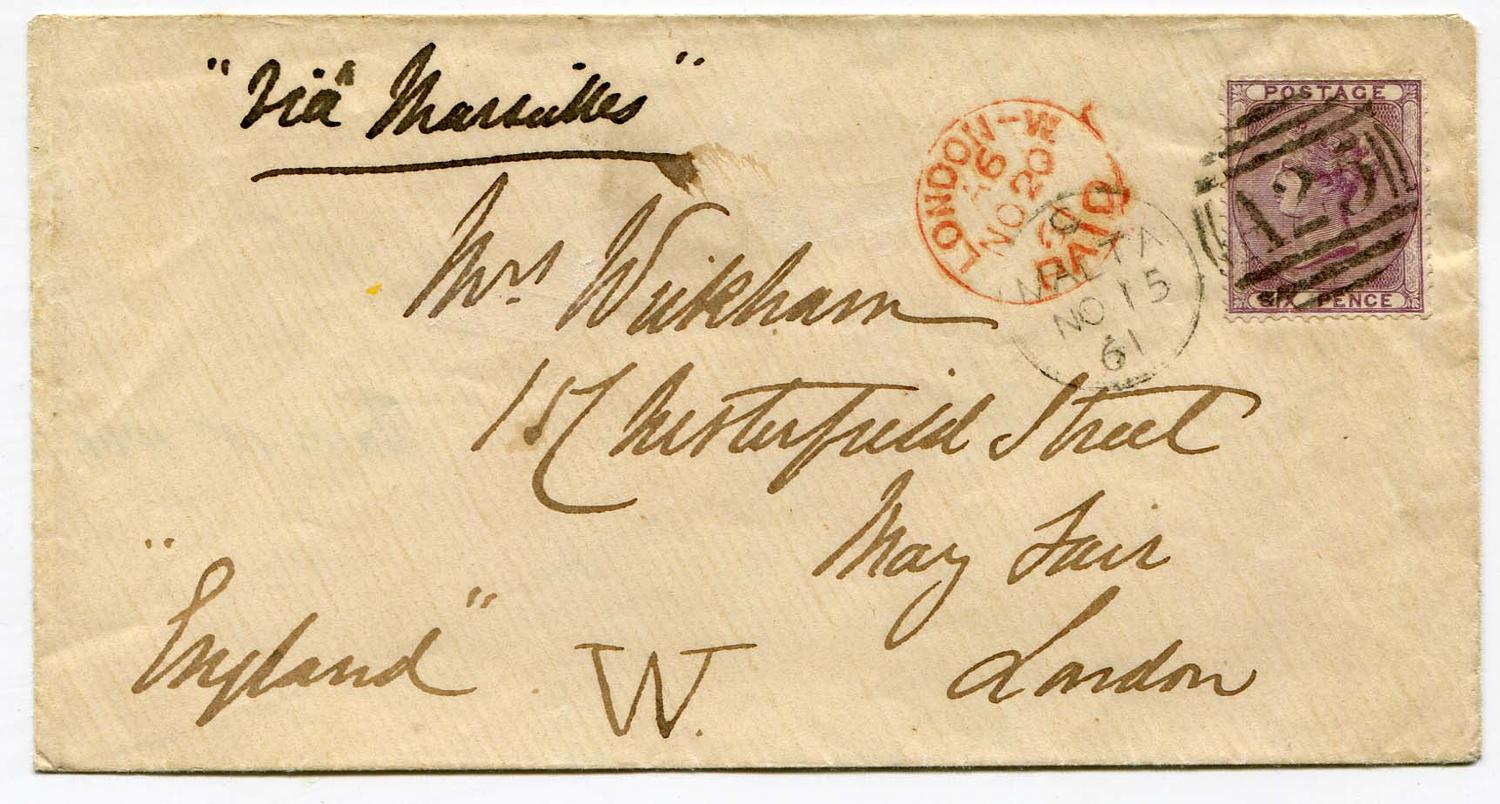 "Viâ Marseilles"
Mrs Wickham
15 Chesterfield Street
May Fair
London
"England"
W.
LONDON-W
NO 20
PAID
MALTA
NO 15
61
POSTAGE
A25
SIX PENCE